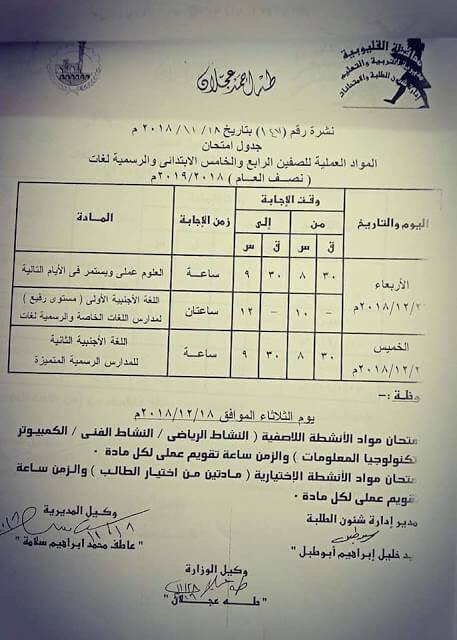 محافظة القليوبية
مديرية التربية والتعليم
إدارة شئون الطلبة والامتحانات
طه أحمد عجلان
نشرة رقم (١٤٧) بتاريخ ٢٠١٨/١١/١٨ م
جدول امتحان
المواد العملية للصفين الرابع والخامس الابتدائى والرسمية لغات
( نصف العام ) ٢٠١٩/٢٠١٨م
اليوم والتاريخ وقت الإجابة زمن الإجابة المادة
من إلى
ق س ق س
الأربعاء ٣٠ ٨ ٣٠ ٩ ساعة العلوم عملى ويستمر فى الأيام التالية
٢٠١٨/١٢/ م – ١٠ – ١٢ ساعتان اللغة الأجنبية الأولى ( مستوى رفيع )
لمدارس اللغات الخاصة والرسمية لغات
الخميس ٣٠ ٨ ٣٠ ٩ ساعة اللغة الأجنبية الثانية
٢٠١٨/١٢/ م للمدارس الرسمية المتميزة
وظة :-
يوم الثلاثاء الموافق ٢٠١٨/١٢/١٨م
متحان مواد الأنشطة اللاصفية ( النشاط الرياضى / النشاط الفنى / الكمبيوتر
تكنولوجيا المعلومات ) والزمن ساعة تقويم عملى لكل مادة .
متحان مواد الأنشطة الإختيارية ( مادتين من اختيار الطالب ) والزمن ساعة
تقويم عملى لكل مادة .
مدير إدارة شئون الطلبة وكيل المديرية
يد خليل إبراهيم أبوطبل " " عاطف محمد ابراهيم سلامة "
وكيل الوزارة
" طه عجلان "